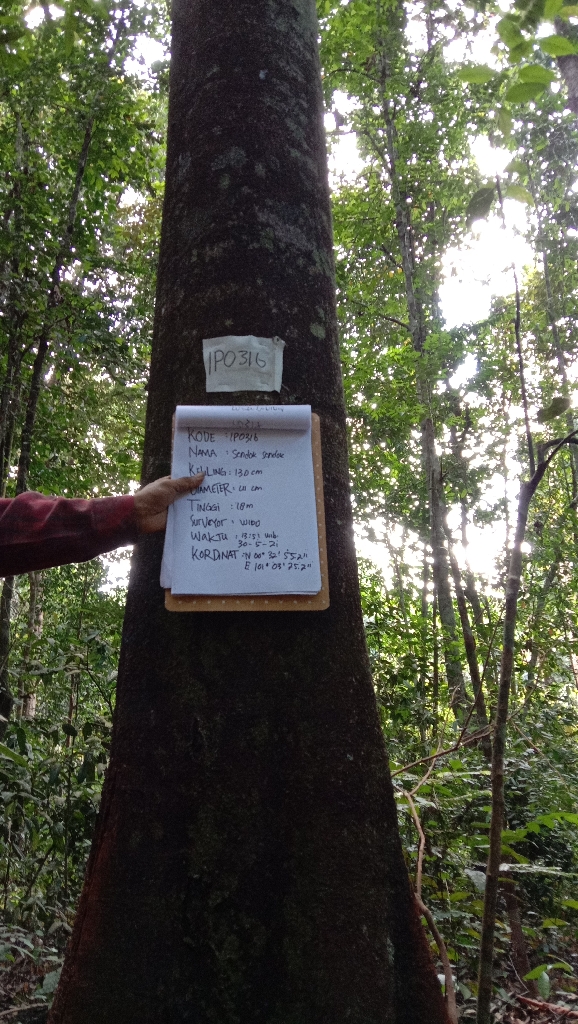 1P0316
KODE : 1P0316
NAMA : Sendok sendok
KELLING : 130 cm
DIAMETER : 41 cm
TINGGI : 18 m
Surveyor : WIDO
WAKTU : 13:51 wib
30-5-21
KORDINAT : N 00° 32' 55.2"
E 101° 03' 25.2"